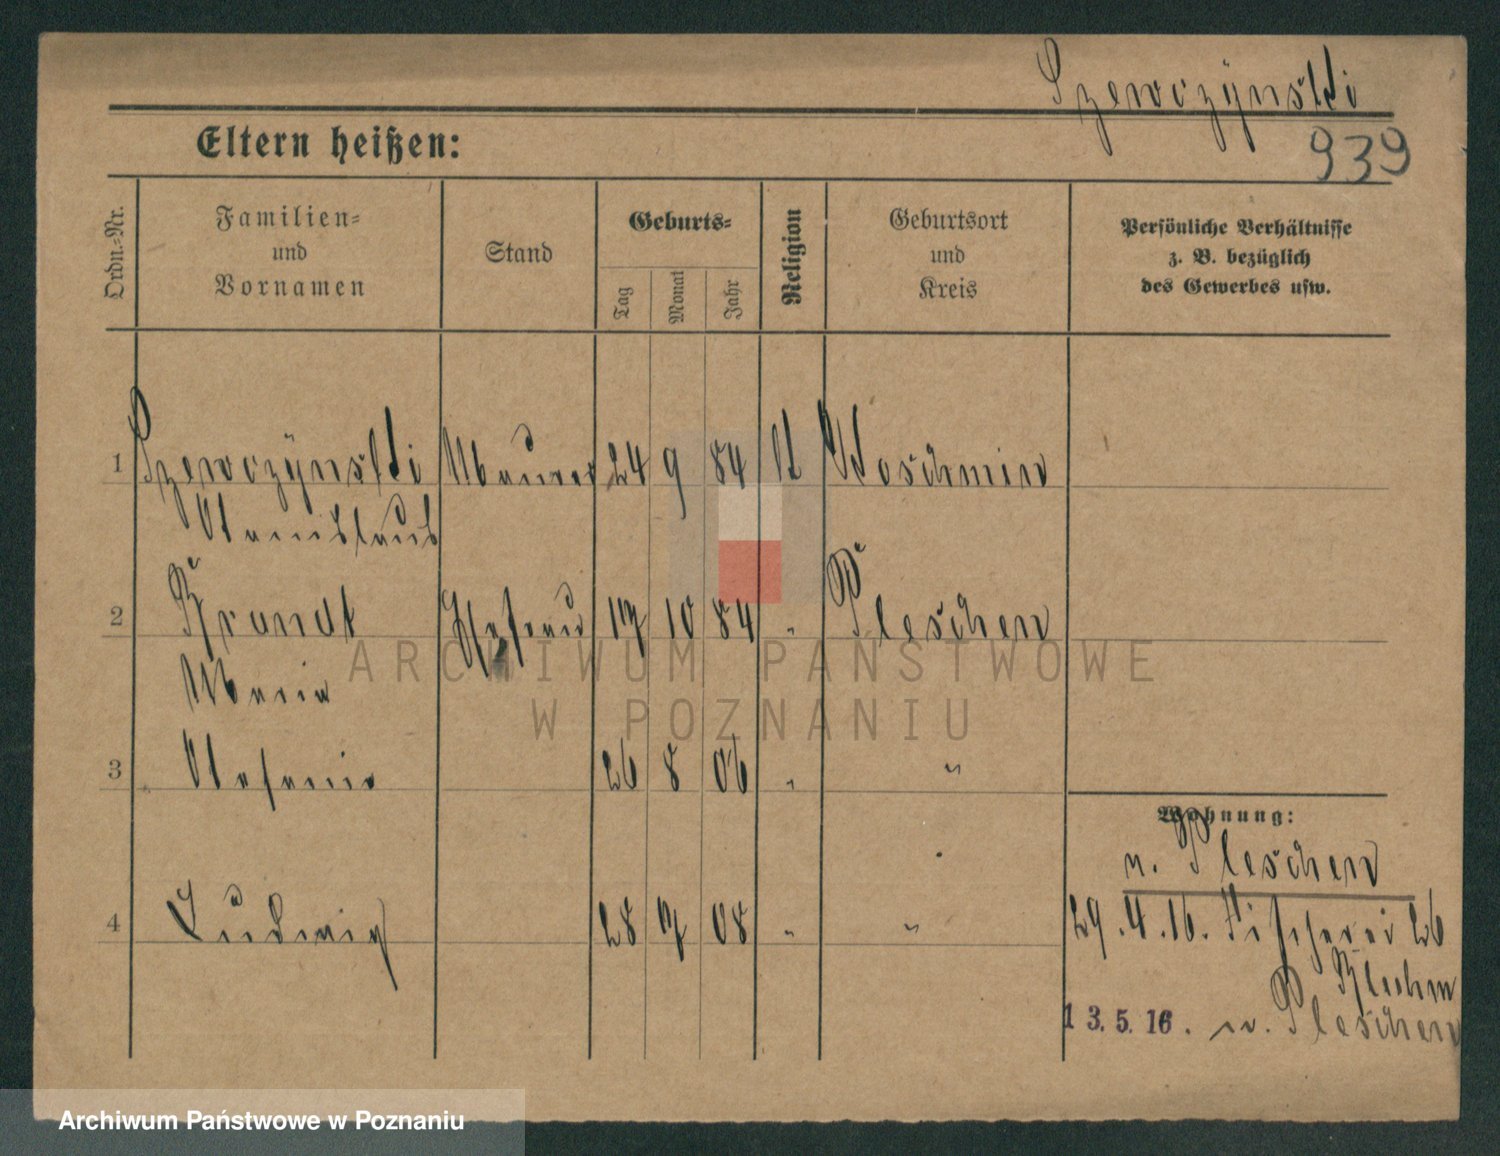 Szewczÿnski
939
Eltern heißen:
Ordn.-Nr.
Familien-
und
Vornamen
Stand
Geburts-
Tag
Monat
Jahr
Religion
Geburtsort
und
Kreis
Persönliche Verhältnisse
z. B. bezüglich
des Gewerbes usw.
1 Szewczÿnski Maurer 24 9 84 Koschmin
Stanislaus
2 Brandt Ehefrau 17 10 84 " Pleschen
Maria
3 Stefanie 26 8 06 " "
Wohnung:
n. Pleschen
4 Ludwig 28 7 08 " "
29.4.16. Fischerei 26
Bluhm
13.5.16. n. Pleschen
ARCHIWUM PAŃSTWOWE
W POZNANIU
Archiwum Państwowe w Poznaniu